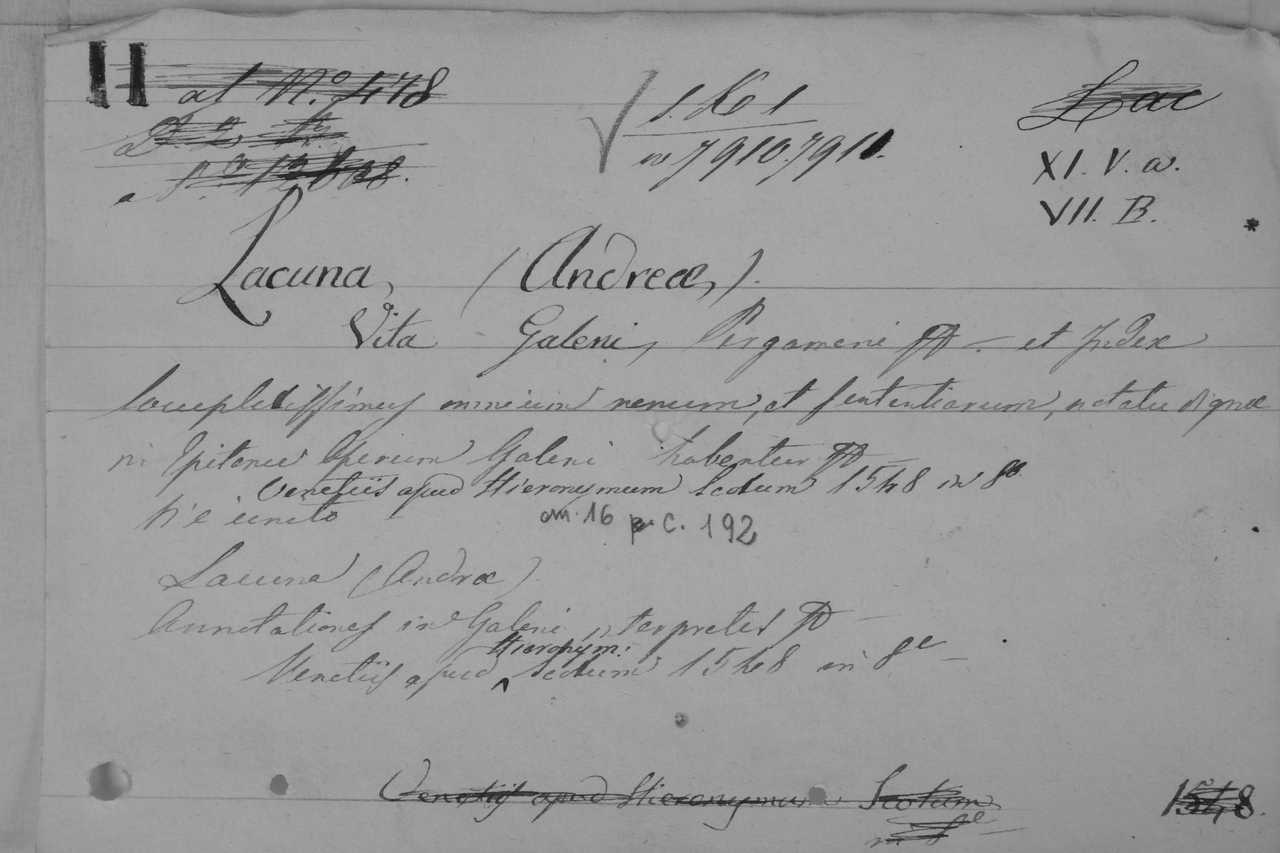 II al N.º 478
S. K 1
Lac
in 7910.7911.
XI. V. a.
VII. B.
*
Lacuna, (Andreæ,).
Vita Galeni, Pergameni et Index
locupletissimus omnium rerum, et sententiarum, notatu dignæ
in Epitome Operum Galeni habentur
Venetiis apud Hieronymum Scotum 1548 in 8º
V'è unito
am. 16 p. C. 192
Lacuna (Andræ)
Annotationes in Galeni interpretes
Venetiis apud Hieronym: Scotum 1548 in 8º
Venetijs apud Hieronymum Scotum 1548.
in 8º